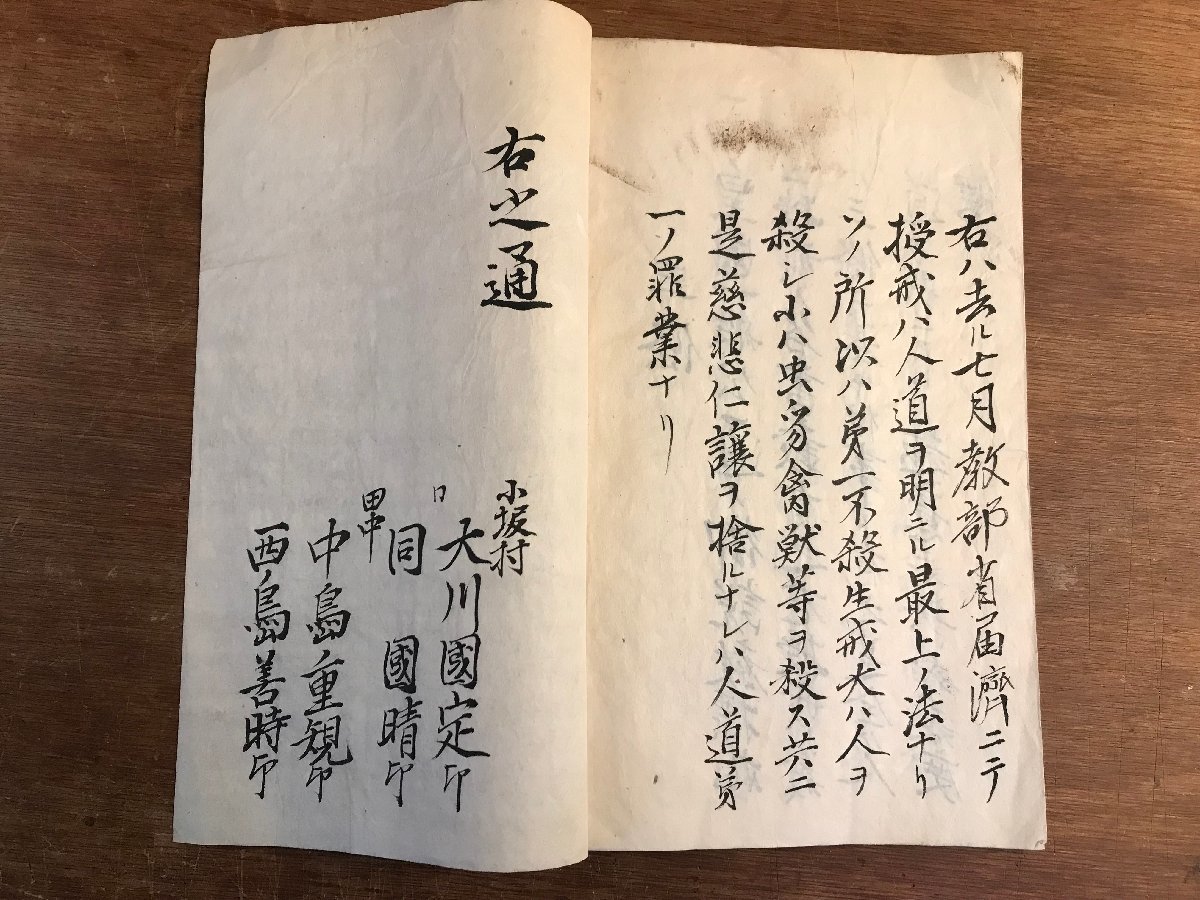 右ハ去ル七月教部省届濟ニテ
授戒ハ人道ヲ明ニル最上ノ法ナリ
ソノ所以ハ第一不殺生戒大ハ人ヲ
殺シ小ハ虫豸禽獣等ヲ殺ス共ニ
是慈悲仁譲ヲ捨ルナレハ人道第
一ノ罪業ナリ
右之通
小坂村
大川國定印
同 國晴印
田中
中島重規印
西島善時印